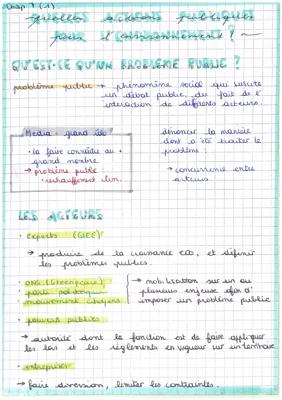 Chap 7 (1)
Quelles actions publiques
pour l'environnement ?
QU'EST-CE QU'UN PROBLÈME PUBLIC ?
problème public → phénomène social qui suscite
un débat public, du fait de l'
interaction de différents acteurs.
Media : grand rôle
• la faire connaître au +
grand nombre
→ problème public
• réchauffement clim.
dénoncer la manière
dont a été traiter le
problème :
→ concurrence entre
acteurs
LES ACTEURS
• experts (GIEC)
→ produire de la et définir
les problèmes publics.
• ONG (Greenpeace)
• partis politiques
• mouvement citoyens
→ mobilisation sur un ou
plusieurs enjeux afin d'
imposer un problème public
• pouvoirs publics
→ autorité dont la fonction est de faire appliquer
les lois et les règlements en vigueur sur un territoire
• entreprises
→ faire diversion, limiter les contraintes.